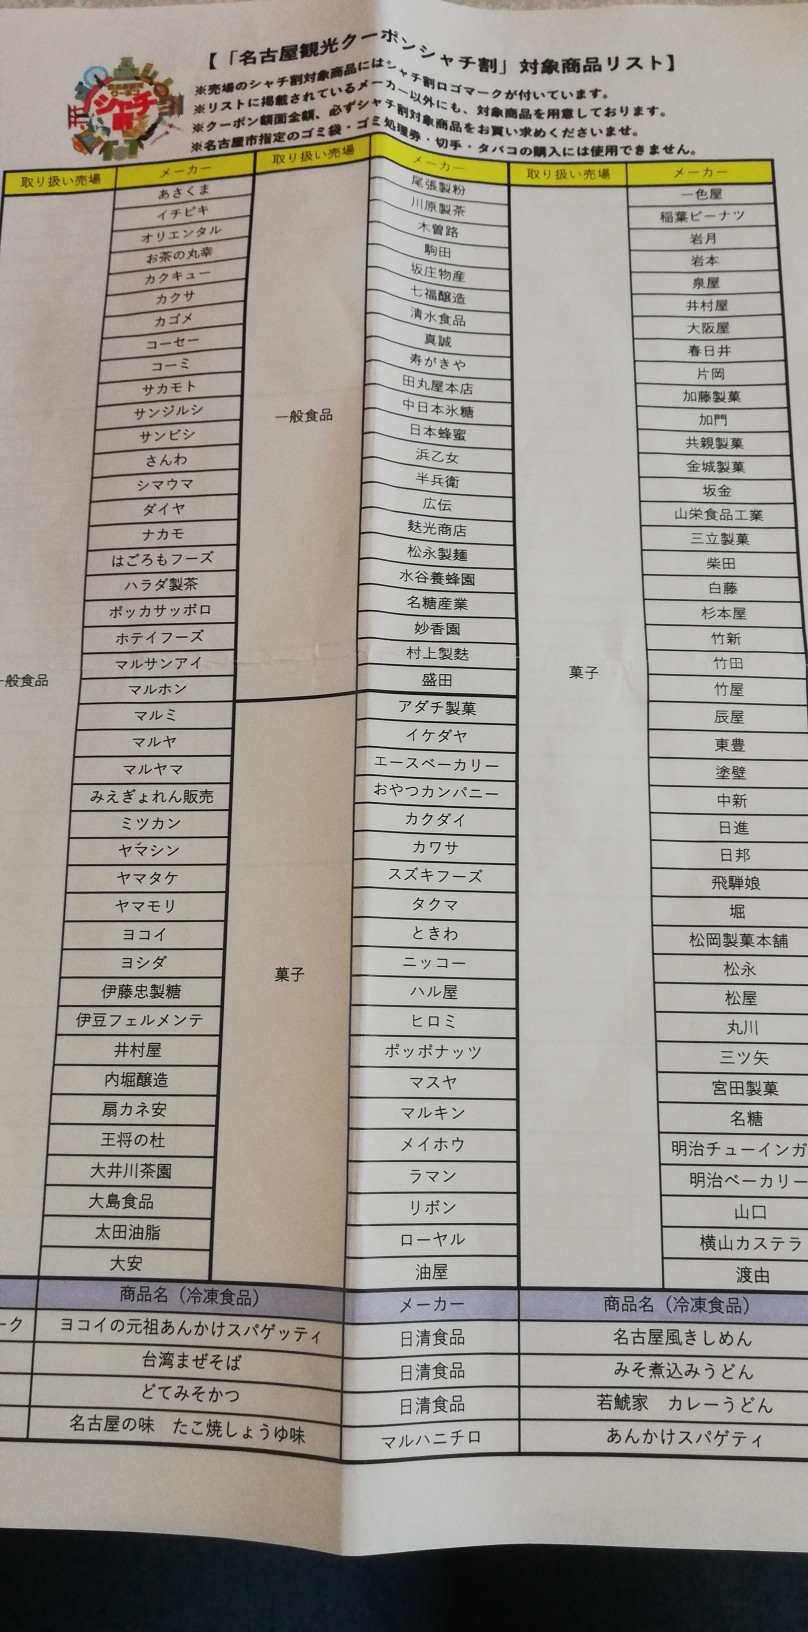 【「名古屋観光クーポンシャチ割」対象商品リスト】
シャチ割
※売場のシャチ割対象商品にはシャチ割ロゴマークが付いています。
※リストに掲載されているメーカー以外にも、対象商品を用意しております。
※クーポン額面全額、必ずシャチ割対象商品をお買い求めくださいませ。
※名古屋市指定のゴミ袋・ゴミ処理券・切手・タバコの購入には使用できません。
取り扱い売場 メーカー
一般食品
あさくま
イチビキ
オリエンタル
お茶の丸幸
カクキュー
カクサ
カゴメ
コーセー
コーミ
サカモト
サンジルシ
サンビシ
さんわ
シマウマ
ダイヤ
ナカモ
はごろもフーズ
ハラダ製茶
ポッカサッポロ
ホテイフーズ
マルサンアイ
マルホン
マルミ
マルヤ
マルヤマ
みえぎょれん販売
ミツカン
ヤマシン
ヤマタケ
ヤマモリ
ヨコイ
ヨシダ
伊藤忠製糖
伊豆フェルメンテ
井村屋
内堀醸造
扇カネ安
王将の杜
大井川茶園
大島食品
太田油脂
大安
取り扱い売場 メーカー
一般食品
尾張製粉
川原製茶
木曽路
駒田
坂庄物産
七福醸造
清水食品
真誠
寿がきや
田丸屋本店
中日本氷糖
日本蜂蜜
浜乙女
半兵衛
広伝
麩光商店
松永製麺
水谷養蜂園
名糖産業
妙香園
村上製麩
盛田
菓子
アダチ製菓
イケダヤ
エースベーカリー
おやつカンパニー
カクダイ
カワサ
スズキフーズ
タクマ
ときわ
ニッコー
ハル屋
ヒロミ
ポッポナッツ
マスヤ
マルキン
メイホウ
ラマン
リボン
ローヤル
油屋
取り扱い売場 メーカー
菓子
一色屋
稲葉ピーナツ
岩月
岩本
泉屋
井村屋
大阪屋
春日井
片岡
加藤製菓
加門
共親製菓
金城製菓
坂金
山栄食品工業
三立製菓
柴田
白藤
杉本屋
竹新
竹田
竹屋
辰屋
東豊
塗壁
中新
日進
日邦
飛騨娘
堀
松岡製菓本舗
松永
松屋
丸川
三ツ矢
宮田製菓
名糖
明治チューインガ
明治ベーカリー
山口
横山カステラ
渡由
商品名（冷凍食品） メーカー 商品名（冷凍食品）
ーク ヨコイの元祖あんかけスパゲッティ 日清食品 名古屋風きしめん
台湾まぜそば 日清食品 みそ煮込みうどん
どてみそかつ 日清食品 若鯱家　カレーうどん
名古屋の味　たこ焼しょうゆ味 マルハニチロ あんかけスパゲティ